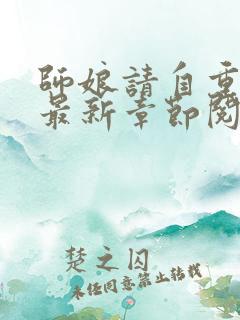 師娘請自重
最新章節閱
楚之囚
未經同意禁止轉載